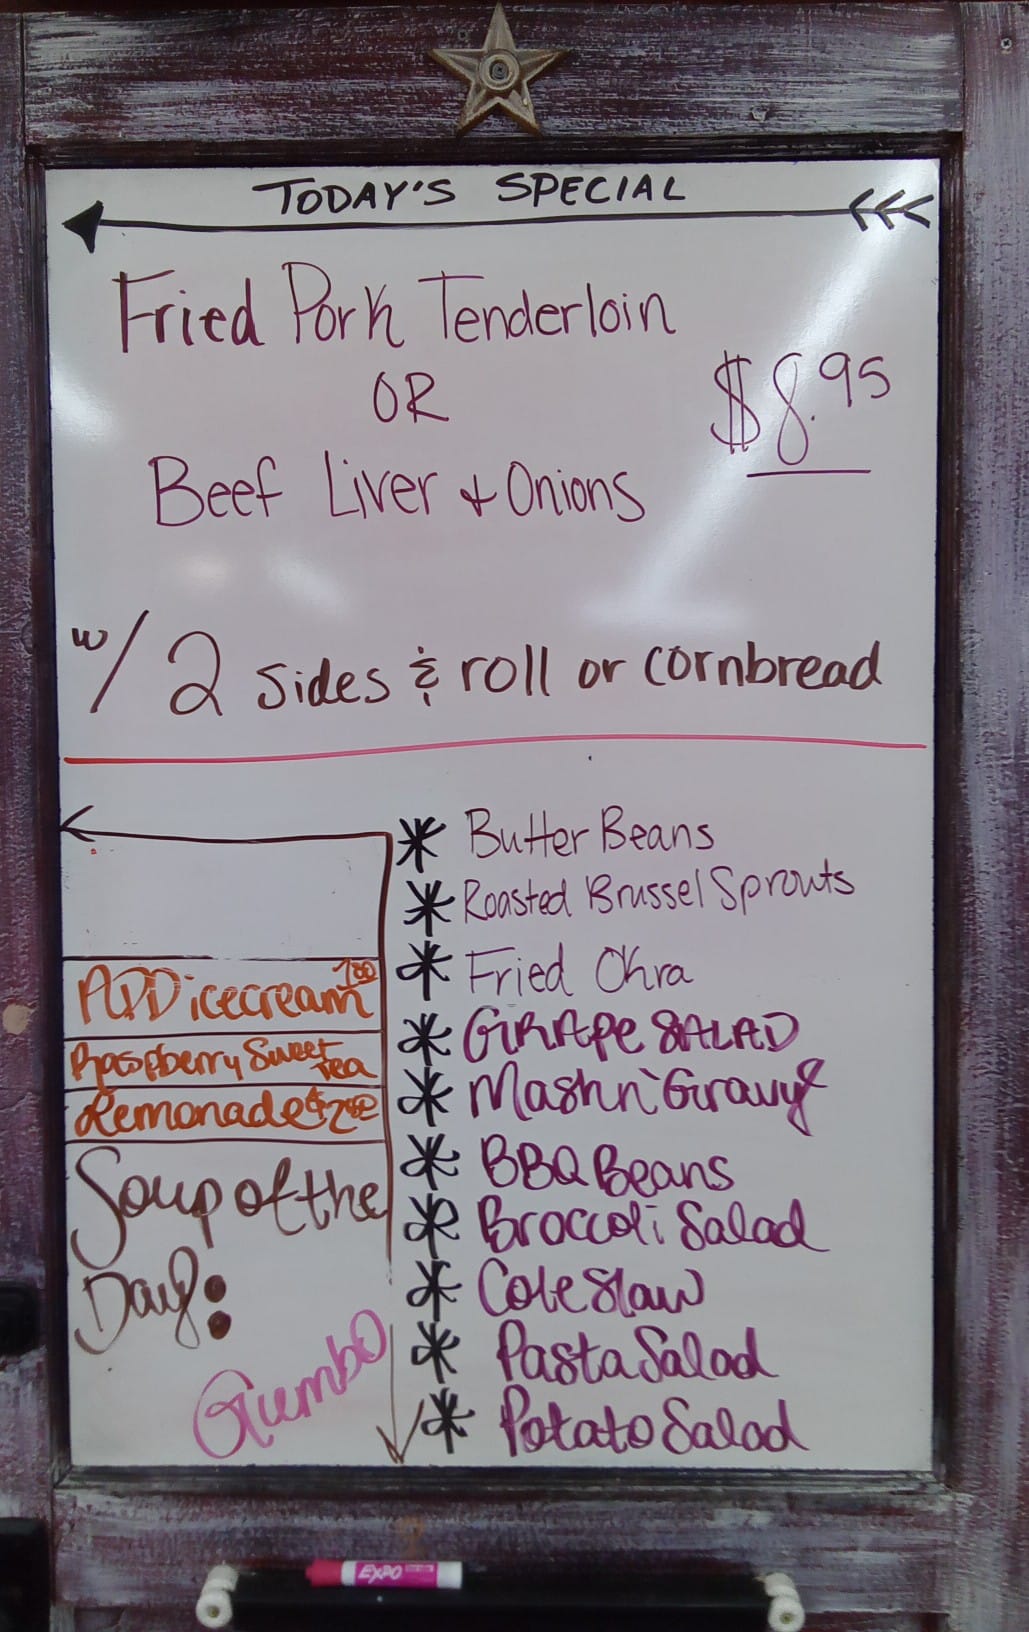 TODAY'S SPECIAL
Fried Pork Tenderloin
OR
$8.95
Beef Liver & Onions
w/ 2 sides & roll or cornbread
ADD icecream 1.00
Raspberry Sweet Tea
Lemonade $2.40
Soup of the
Day:
Gumbo
* Butter Beans
* Roasted Brussel Sprouts
* Fried Okra
* GRAPE SALAD
* Mash n' Gravy
* BBQ Beans
* Broccoli Salad
* Cole Slaw
* Pasta Salad
* Potato Salad
EXPO